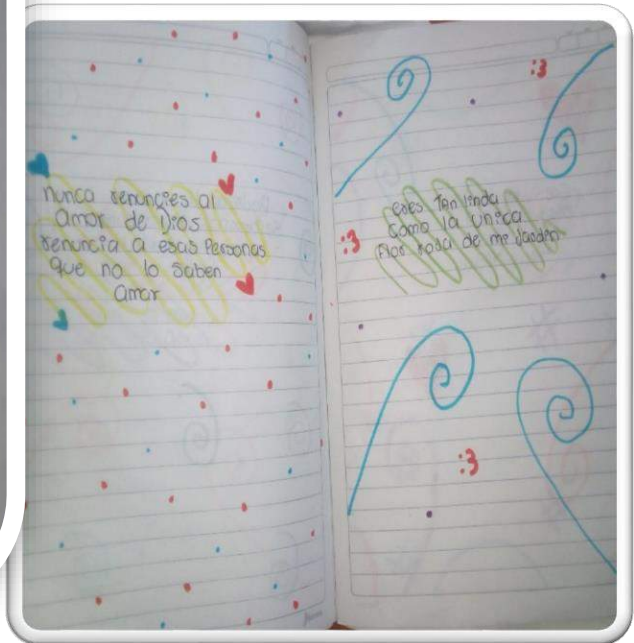 nunca renuncies al
amor de Dios
renuncia a esas Personas
que no lo saben
amar
:3
eres Tan linda
como la unica
:3
Flor rosa de me jarden
:3